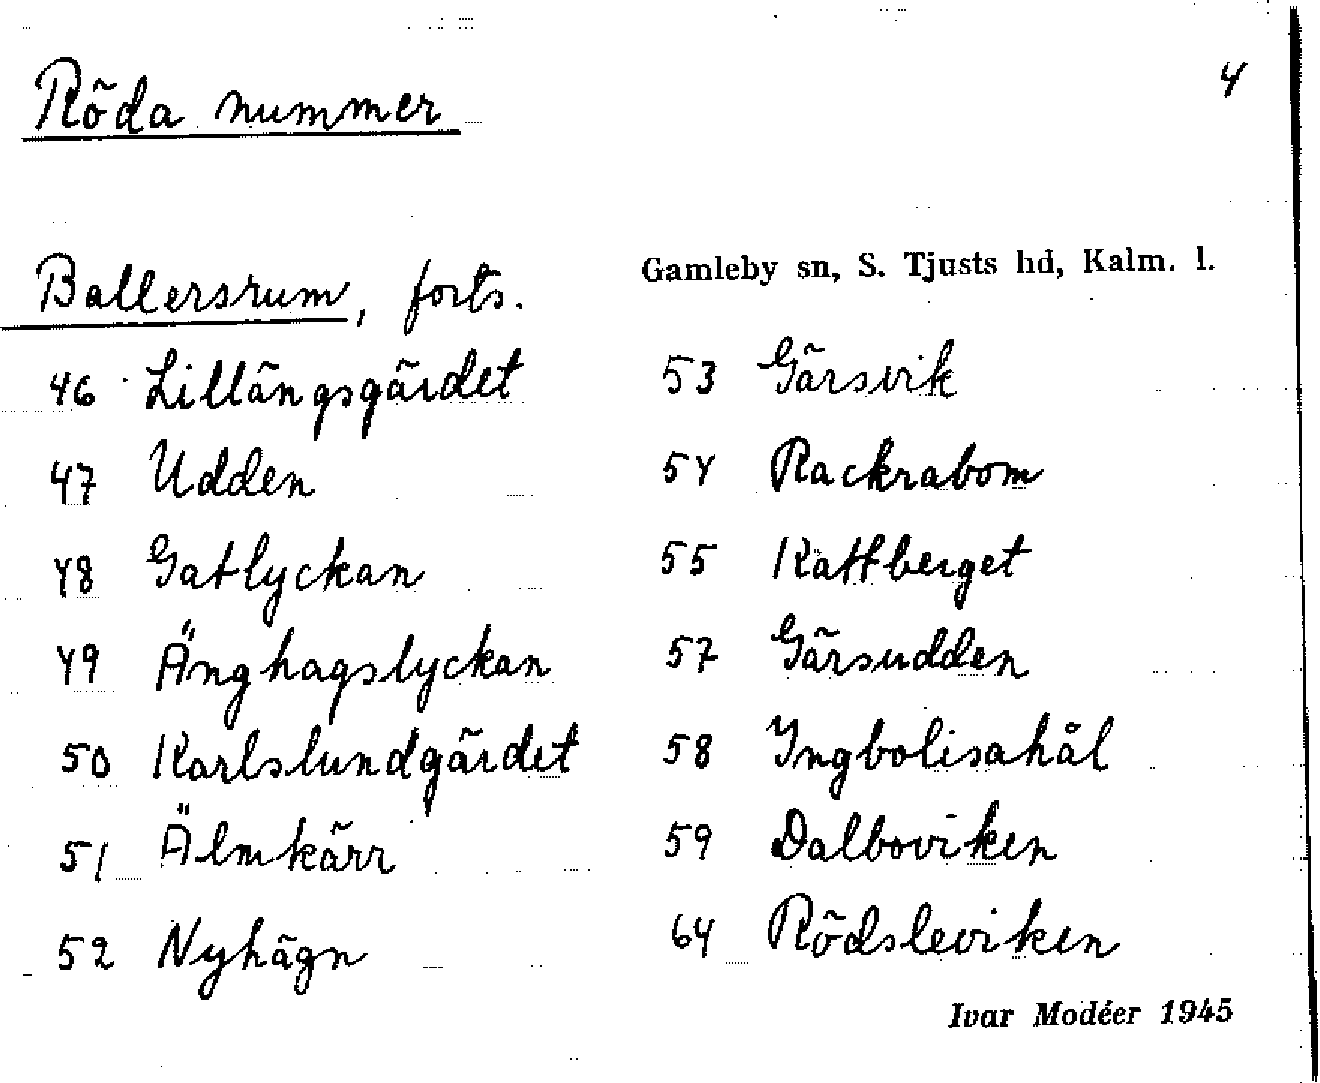 Röda nummer
4
Ballersrum, forts.
Gamleby sn, S. Tjusts hd, Kalm. l.
46 Lillängsgärdet
47 Udden
48 Gatlyckan
49 Änghagslyckan
50 Karlslundgärdet
51 Älmkärr
52 Nyhägn
53 Gärsvik
54 Rackrabom
55 Kattberget
57 Gärsudden
58 Ingbolisahål
59 Dalboviken
64 Rödsleviken
Ivar Modéer 1945